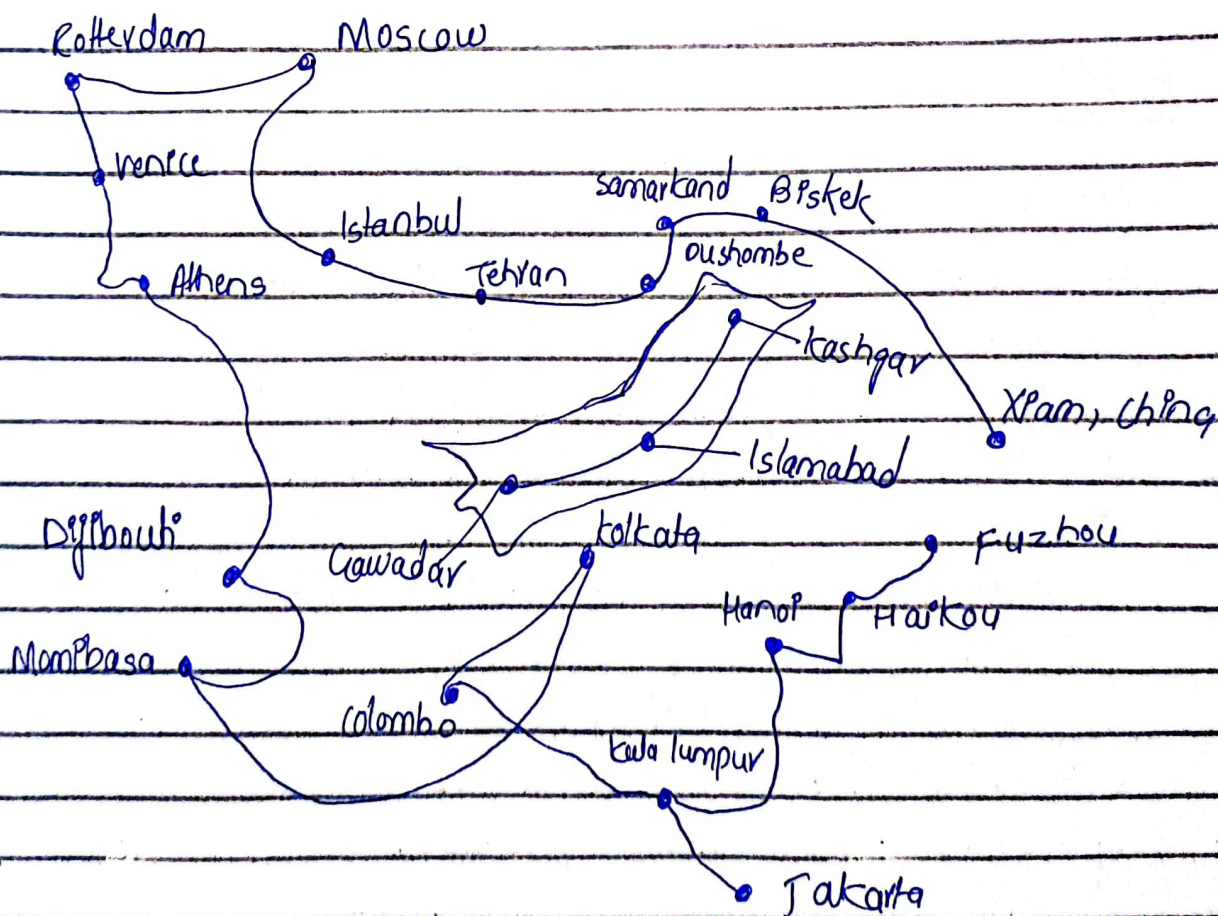 Rotterdam
Moscow
Venice
Samarkand
Biskek
Istanbul
Tehran
Dushombe
Athens
Kashgar
Xiam, China
Islamabad
Djibouti
Gawadar
Kolkata
Fuzhou
Hanoi
Haikou
Mombasa
Colombo
Kula lumpur
Jakarta